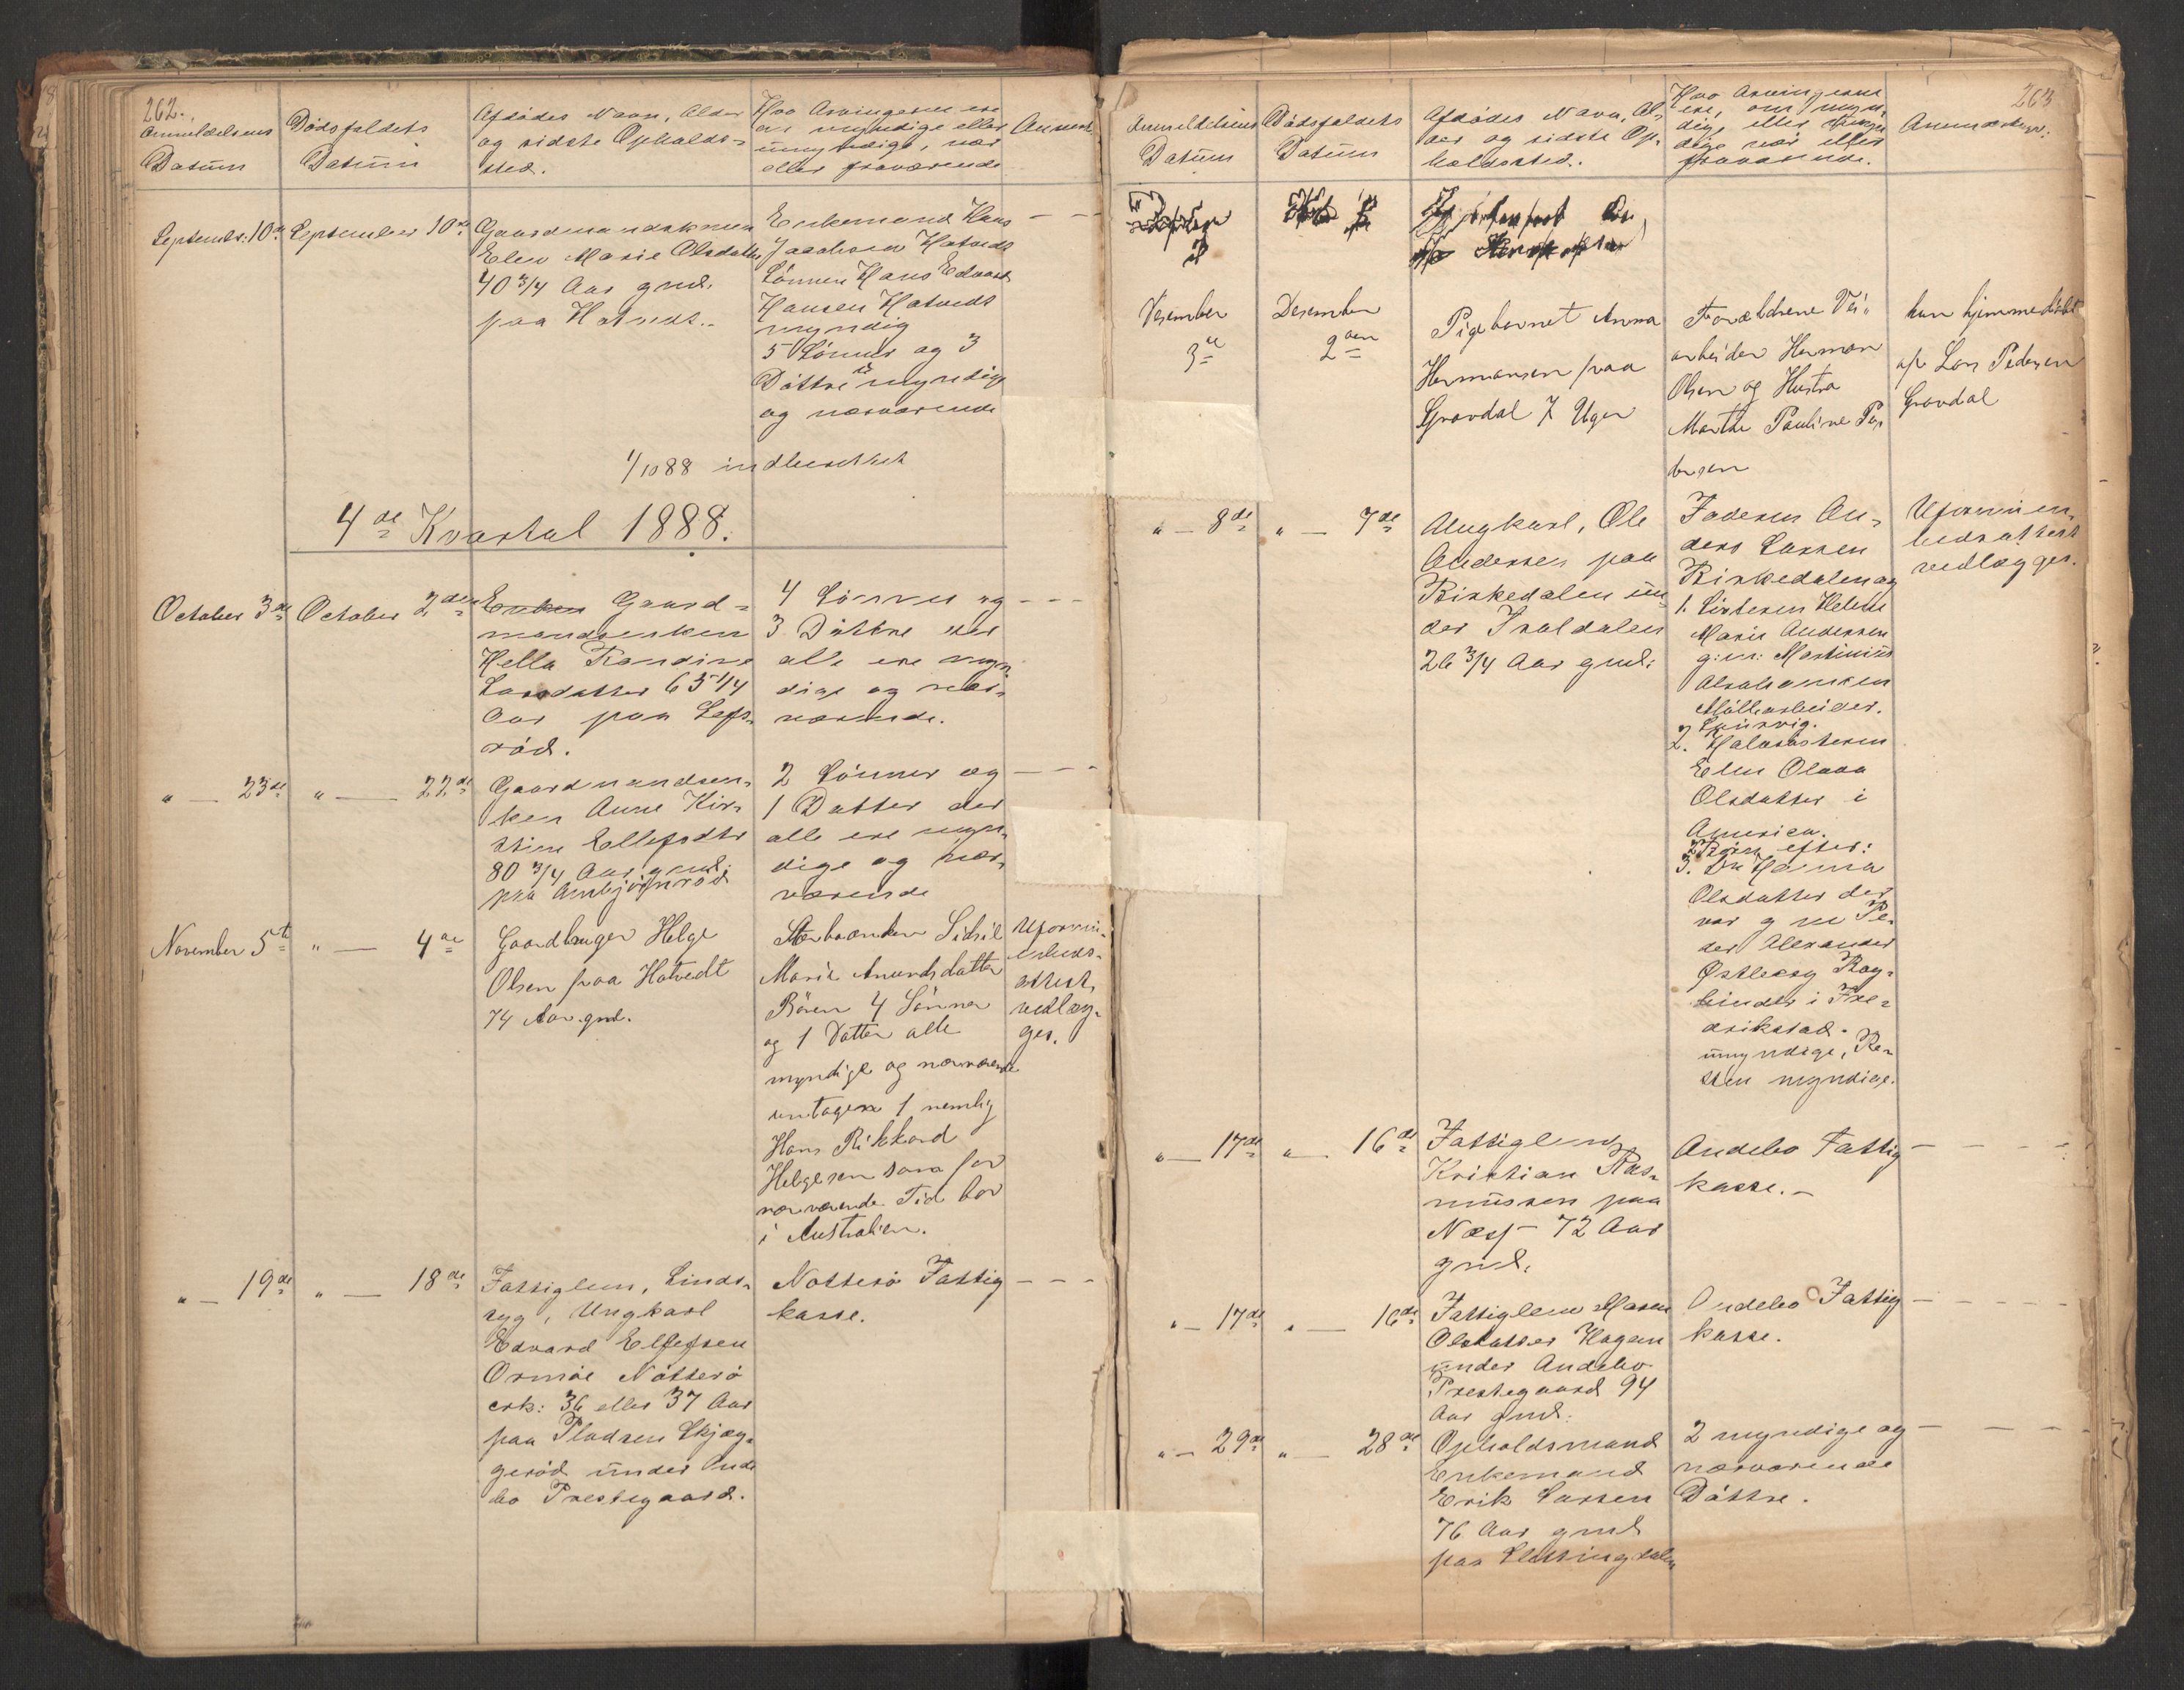 262.
Anmeldelsens
Datum
Dødsfaldets
Datum
Afdødes Navn, Alder
og sidste Opholds-
sted.
Hvo Arvingerne ere
om myndige eller
umyndige, nær
eller fraværende
Anmerk.
Septembr: 10de
September 10de
Gaardmandskonen
Elen Marie Olsdatter
40 3/4 Aar gml.
paa Hotvedt.
Enkemand Hans
Jacobsen Hotvedt
Sønnen Hans Edvard
Hansen Hotvedt
myndig
5 Sønner og 3
Døttre umyndige
og nærværende
1/10 88 indberettet
4de Kvartal 1888.
October 3de
October 2den
Enken Gaard-
mandsenken
Hella Randine
Larsdatter 65 1/4
Aar paa Lefs-
rød.
4 Sønner og
3 Døttre der
alle ere myn-
dige og nær-
værende.
" — 23de
" — 22de
Gaardmandsen-
ken Anne Kir-
stine Ellefsdtr
80 3/4 Aar gml.
paa Anbjørnrød
2 Sønner og
1 Datter der
alle ere myn-
dige og nær-
værende
November 5te
" — 4de
Gaardbruger Helge
Olsen paa Hotvedt
74 Aar gml.
Marie Anundsdatter
Børn 4 Sønner
og 1 Datter alle
myndige og nærværende
untagen 1 nemlig
Hans Rikkard
Helgesen som for
nærværende Tid bor
i Australien.
Uformu-
enheds-
attest
vedlæg-
ges.
" — 19de
" — 18de
Fattiglem, Sinds-
syg, Ungkarl
Edvard Ellefsen
Ormøe Nøtterø
cirk: 36 eller 37 Aar
paa Pladsen Skjæg-
gerød under Ande
bo Prestegaard.
Nøtterø Fattig
kasse.
263
Anmeldelsens
Datum
Dødsfaldets
Datum
Afdødes Navn, Al-
der og sidste Op-
holdssted.
Hvo Arvingerne
ere, om myn-
dige eller umyn
dige nær eller
fraværende.
Anmerkn:
Desember
3de
Desember
2den
Pigebarnet Anna
Hermansen paa
Gravdal 7 Uger
Forældrene Vei-
arbeider Herman
Olsen og Hustru
Marthe Pauline Pe-
dersen
hun hjemmedøbt
af Lars Pedersen
Gravdal
" — 8de
" — 7de
Ungkarl, Ole
Andersen paa
Birkedalen un-
der Trolldalen
26 3/4 Aar gml:
Faderen An-
ders Larsen
Birkedalen og
1. Søsteren Helene
Marie Andersen
g: m: Martinius
Abrahamsen
Møllearbeider.
Laurvig.
2. Halvsøsteren
Elen Olava
Olsdatter i
America.
2 Børn efter:
3. Do Hanna
Olsdatter der
var g m Pe-
der Alexander
Østlexsy Bog-
binder i Fre-
drikstad.
umyndige, Re-
sten myndige.
Uformuen-
hedsattest
vedlægges.
" — 17de
" — 16de
Fattiglem
Kristian Ras-
mussen paa
Næs 72 Aar
gml.
Andebo Fattig
kasse.
" — 17de
" — 16de
Fattiglem Maren
Olsdatter Hagen
under Andebo
Prestegaard 94
Aar gml:
Andebo Fattig
kasse.
" — 29de
" — 28de
Opholdsmand
Enkemand
Erik Larsen
76 Aar gml
2 myndige og
nærværende
Døttre.